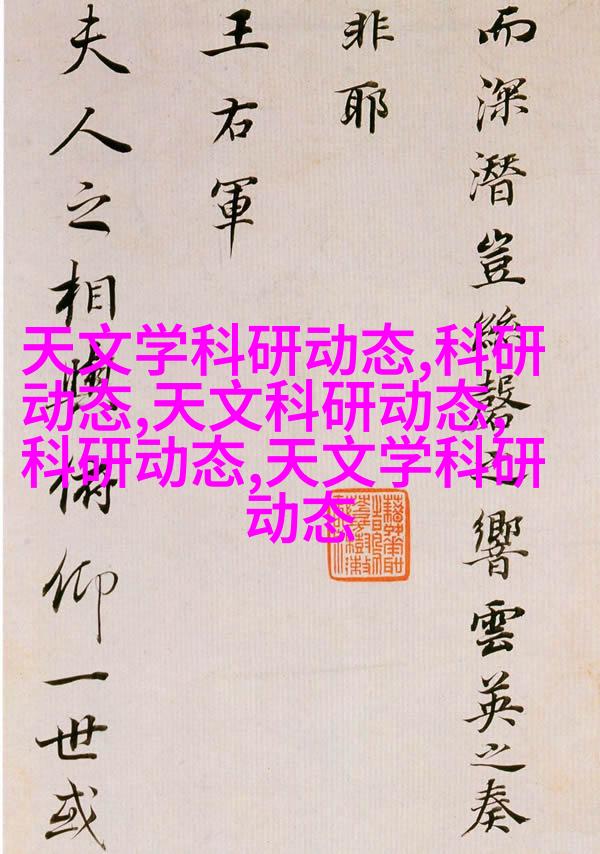 而深潛豈絲磬之響雲英之奏
非耶
王右軍
夫人之相與俯仰一世或
天文学科研动态,科研
动态,天文科研动态,
科研动态,天文学科研
动态